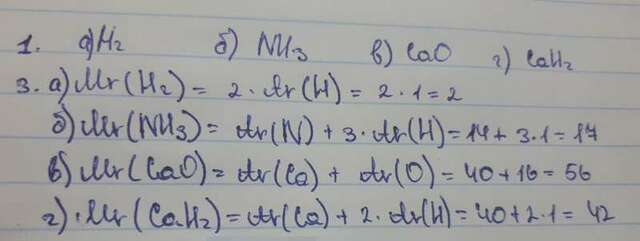 1. а) H₂ б) NH₃ в) CaO г) CaH₂
3. а) Mr(H₂) = 2 · Ar(H) = 2 · 1 = 2
б) Mr(NH₃) = Ar(N) + 3 · Ar(H) = 14 + 3 · 1 = 17
в) Mr(CaO) = Ar(Ca) + Ar(O) = 40 + 16 = 56
г) Mr(CaH₂) = Ar(Ca) + 2 · Ar(H) = 40 + 2 · 1 = 42